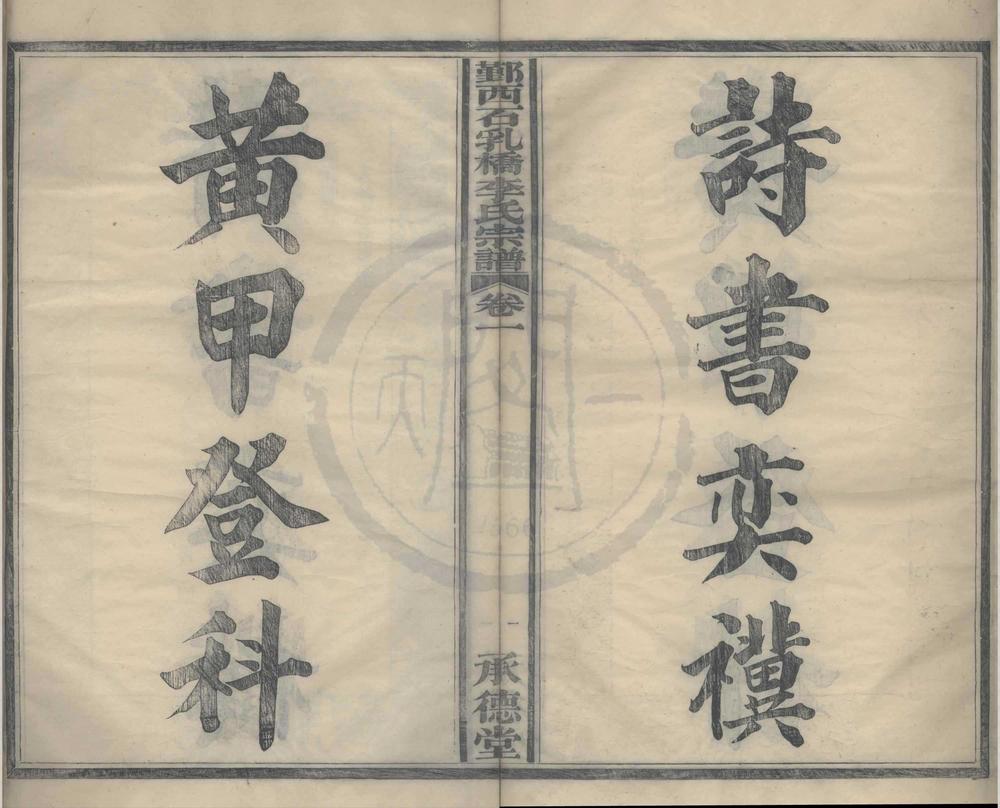 詩書奕禩
鄞西石乳橋李氏宗譜
卷一
一
承德堂
黃甲登科